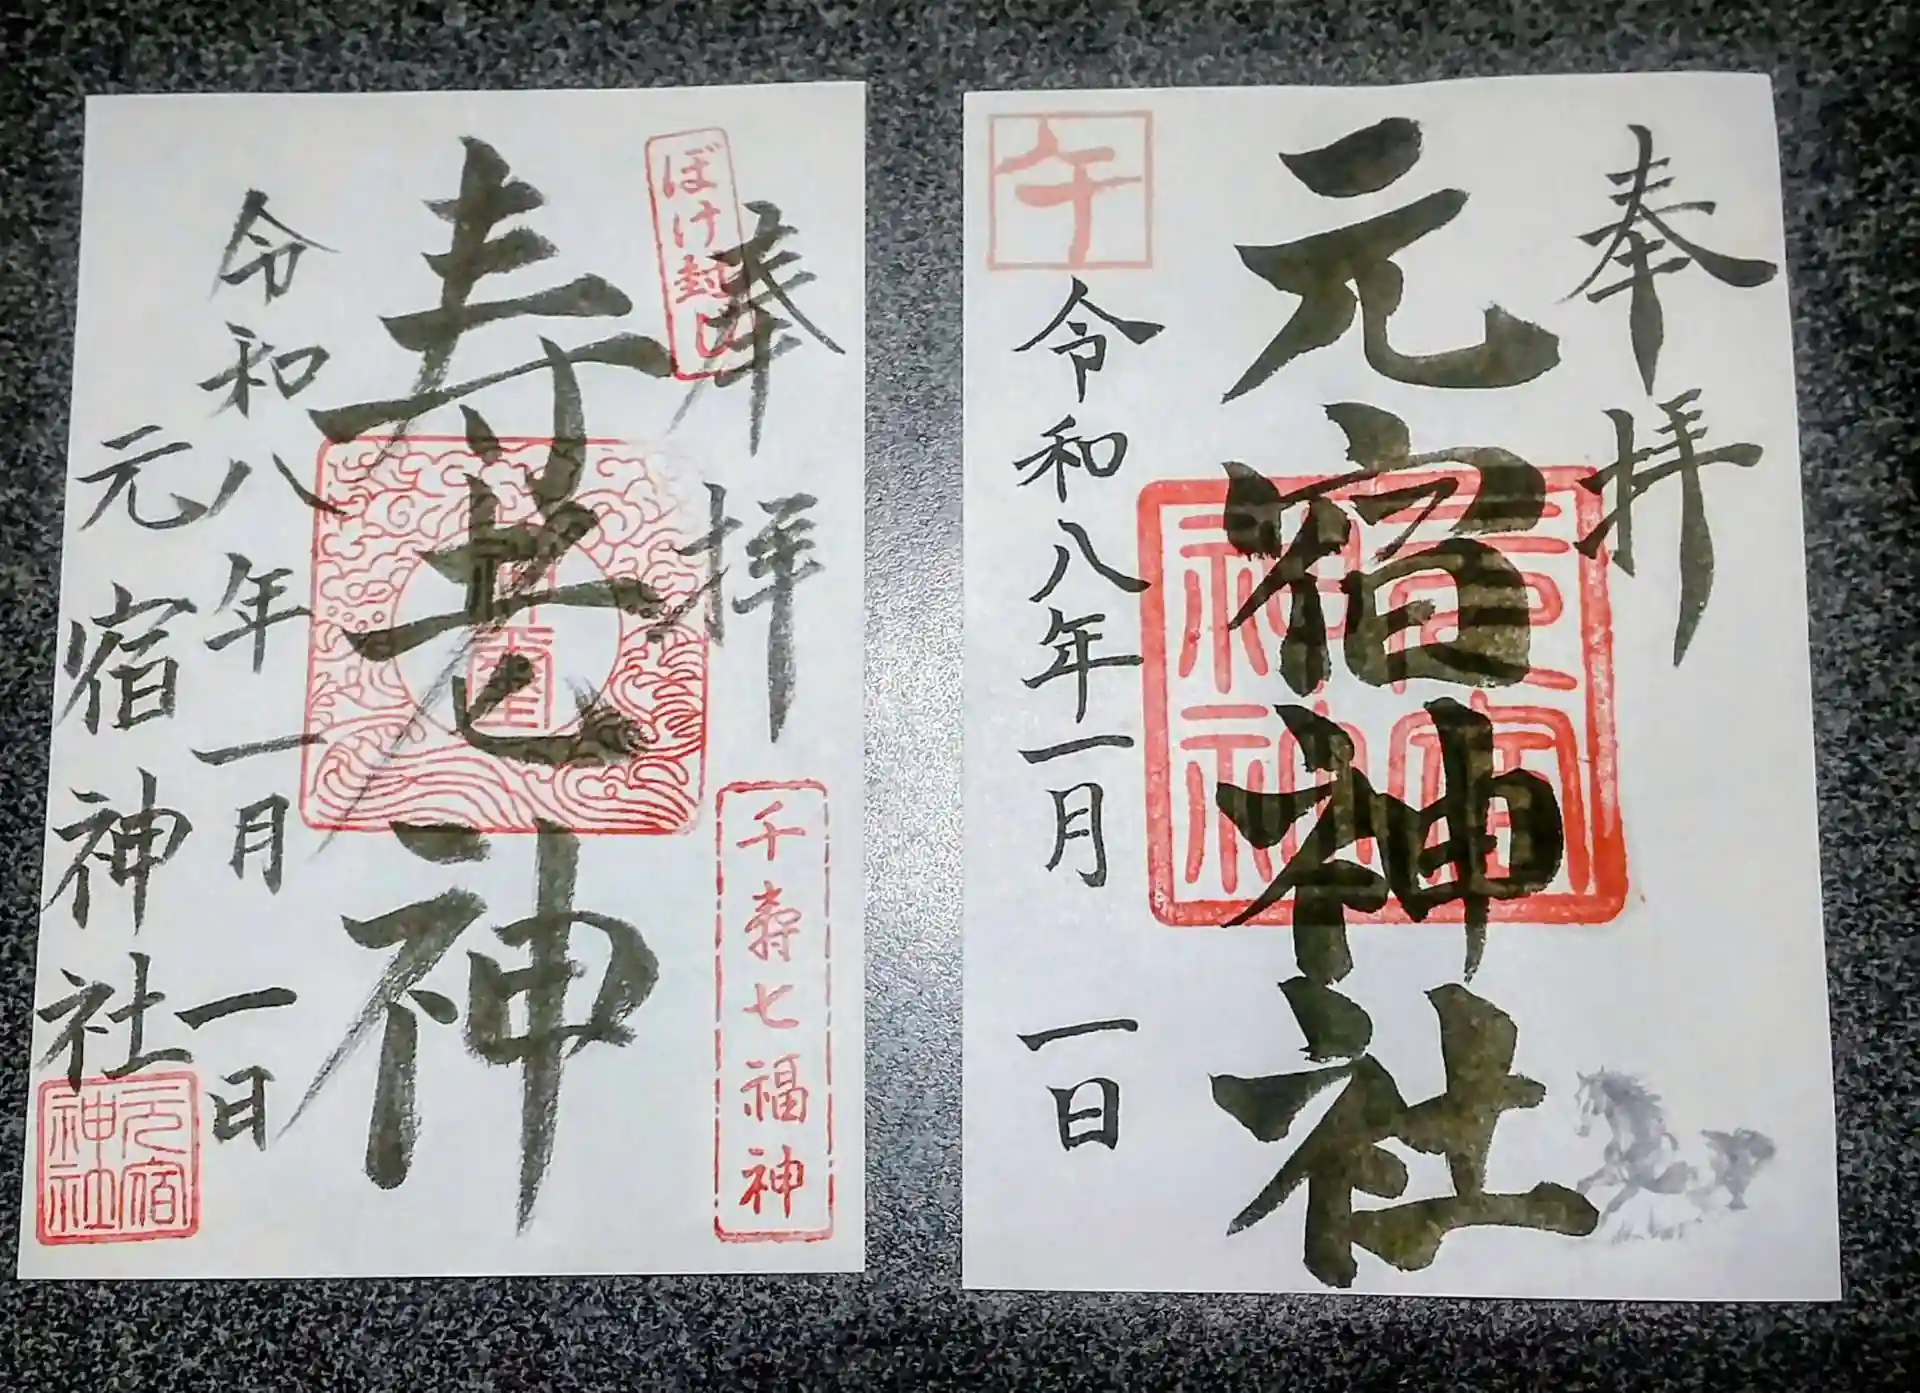 奉拝
ぼけ封じ
千寿七福神
寿老神
令和八年一月 一日
元宿神社
元宿神社
奉拝
元宿神社
午
令和八年一月 一日